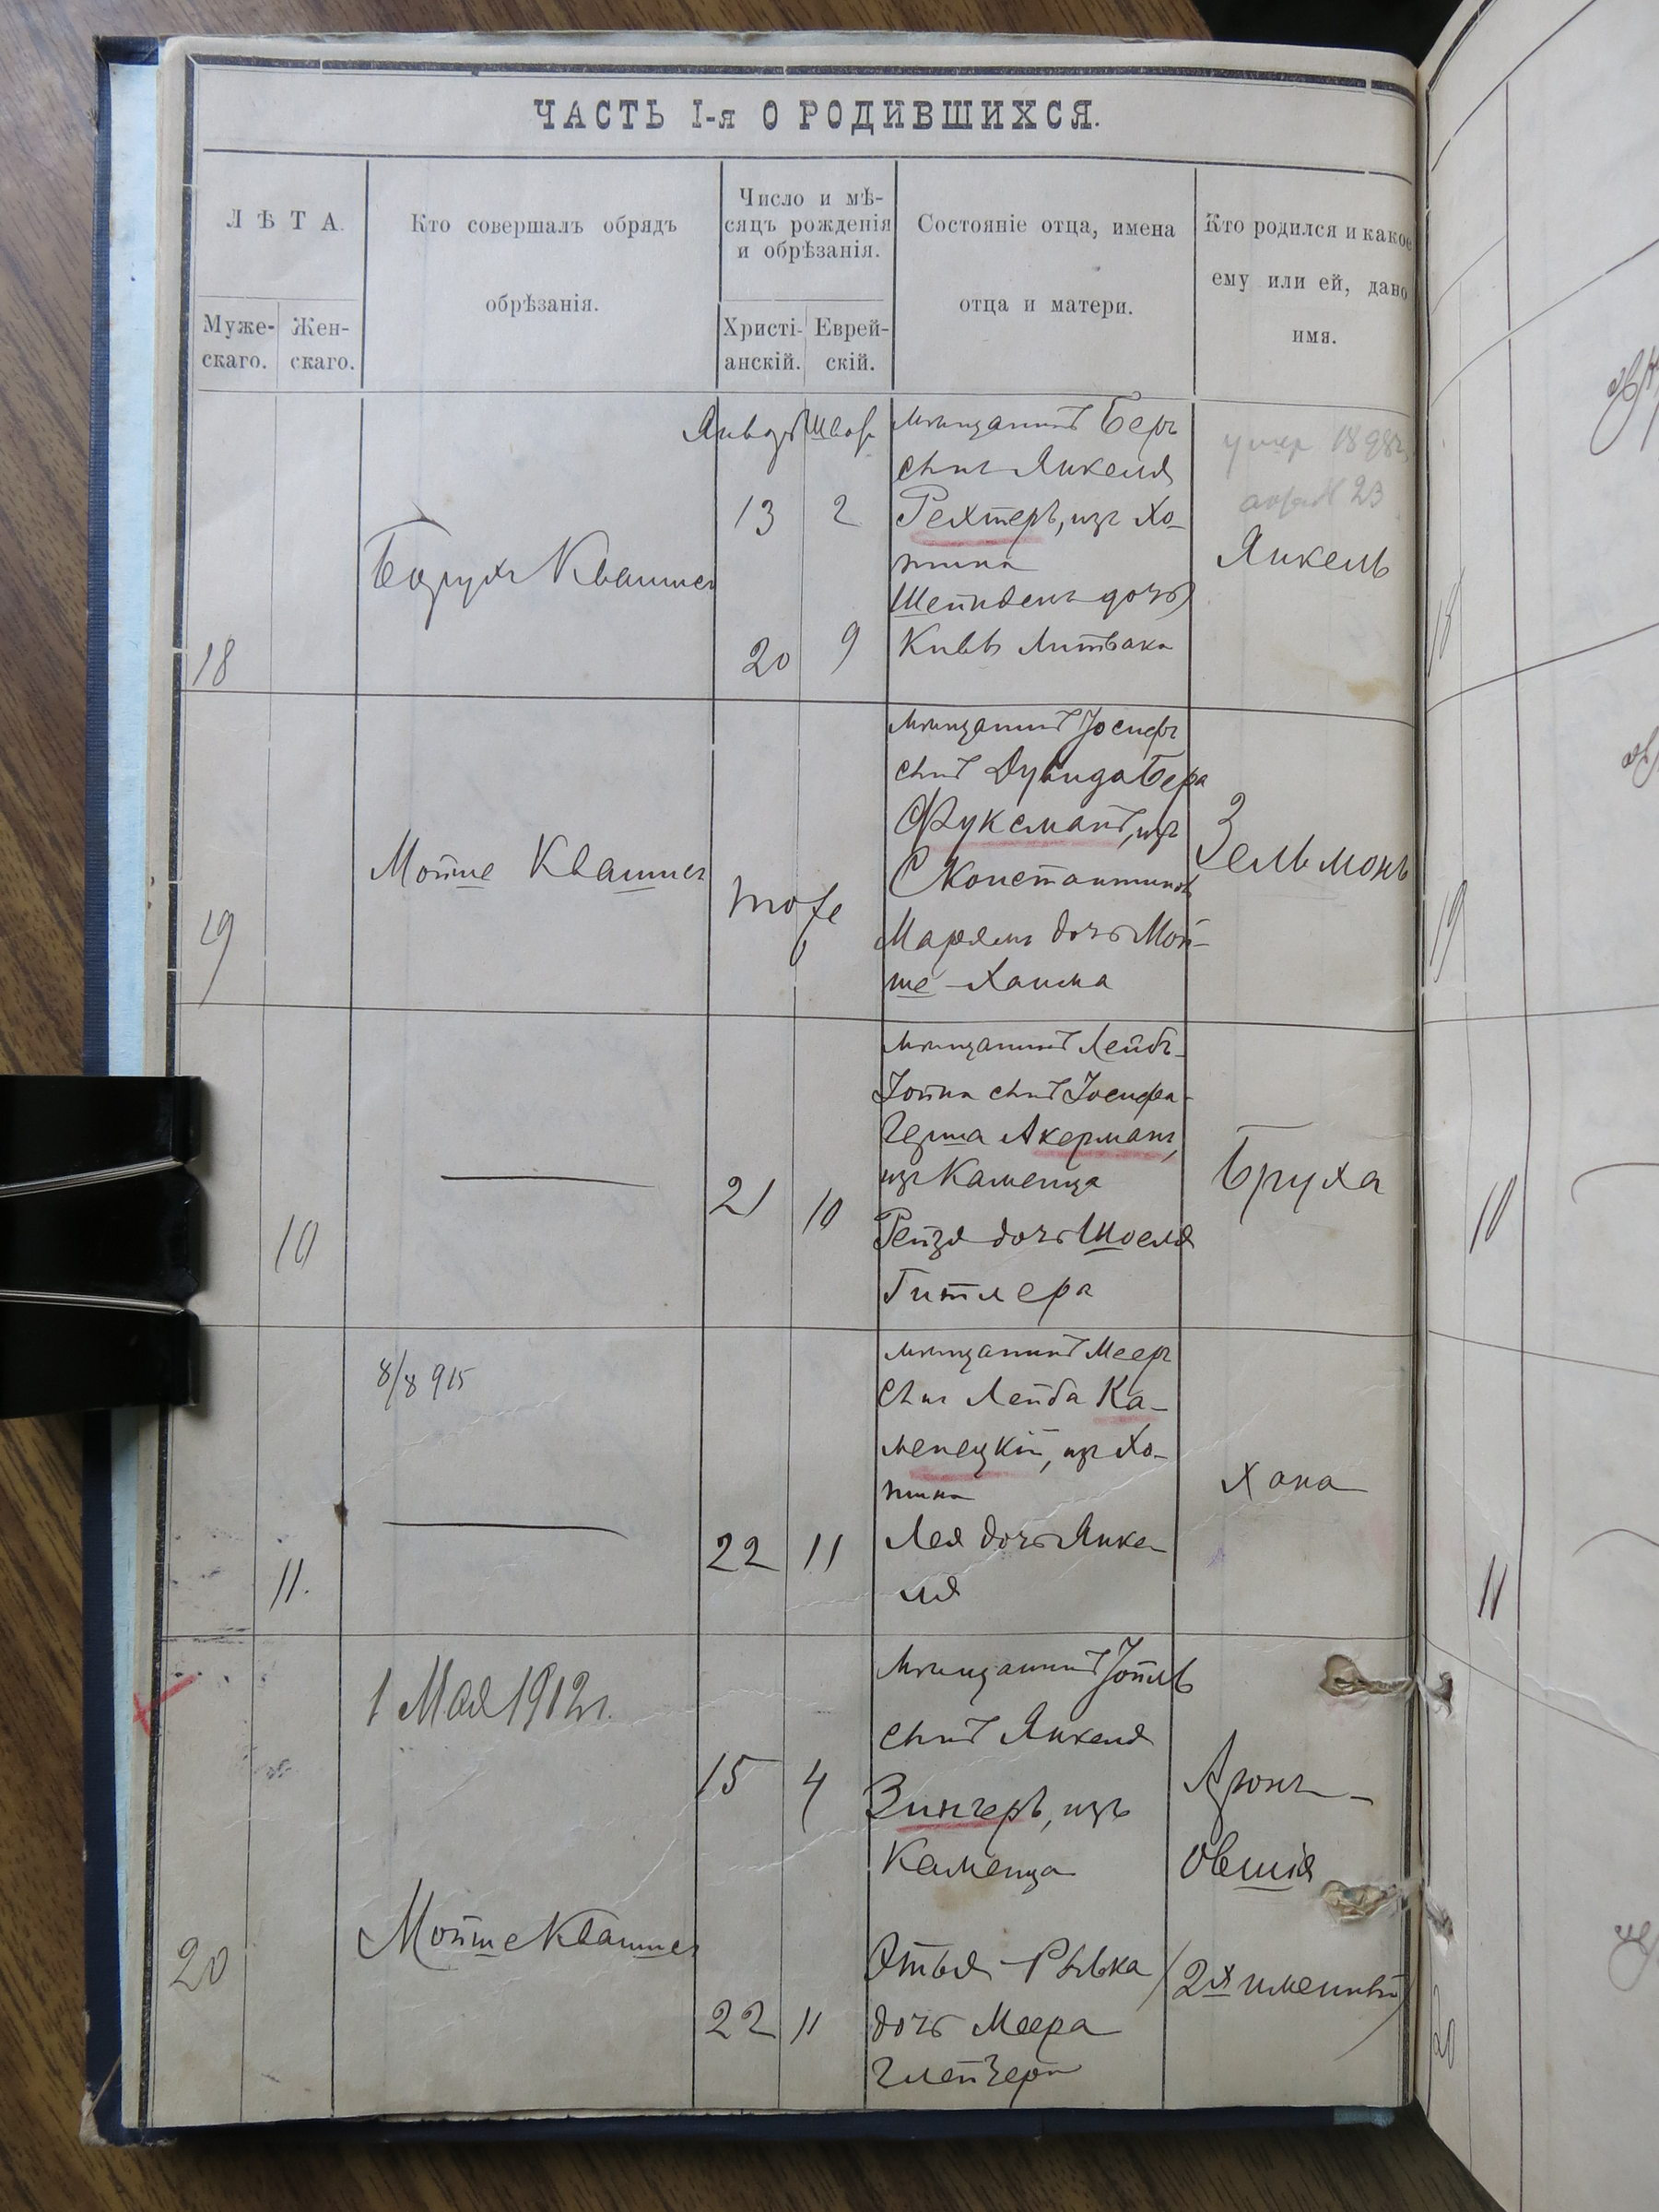 ЧАСТЬ I-я О РОДИВШИХСЯ.
ЛѢТА.
Муже-
скаго.
Жен-
скаго.
Кто совершалъ обрядъ
обрѣзанія.
Число и мѣ-
сяцъ рожденія
и обрѣзанія.
Христі-
анскій.
Еврей-
скій.
Состояніе отца, имена
отца и матери.
Кто родился и какое
ему или ей, дано
имя.
18
Борухъ Квашнеръ
Январь
13
20
Шват
2
9
мѣщанинъ Беръ
сынъ Янкеля
Рехтеръ, изъ Хо-
тина
дочь
Кивы Литвака
умер 1898г.
23
Янкель
19
Мойше
тоже
мѣщанинъ Іосифъ
сынъ Дувида Бера
Фуксманъ, изъ
С Константинов
Марьямъ дочь Мой-
ше-Хаима
Зельмонъ
10
21
10
мѣщанинъ Лейбъ-
Іойна сынъ Іосифа-
Герша Акерманъ,
изъ Каменца
Рейзя дочь Шоеля
Гитлера
Бруха
11.
8/8 915
22
11
мѣщанинъ Мееръ
сынъ Лейба Ка-
менецкій, изъ Хо-
тина
Лея дочь Янке-
ля
Хана
20
1 Мая 1912г.
Мойше
15
22
4
11
мѣщанинъ Іойль
сынъ Янкеля
Зингеръ, изъ
Каменца
Этья-Рывка
дочь Меера
Глейзера
Аронъ-
Овшія
(2х именный)
18
19
10
11
20